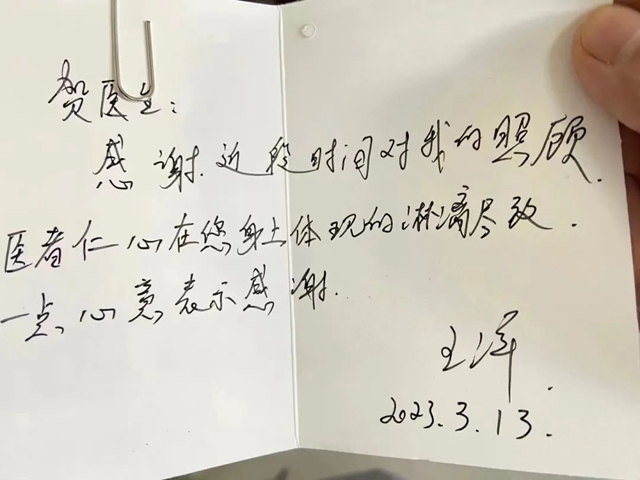 贺医生：
感谢.近段时间对我的照顾.
医者仁心在您身上体现的淋漓尽致.
一点心意表示感谢.
王洋.
2023.3.13.